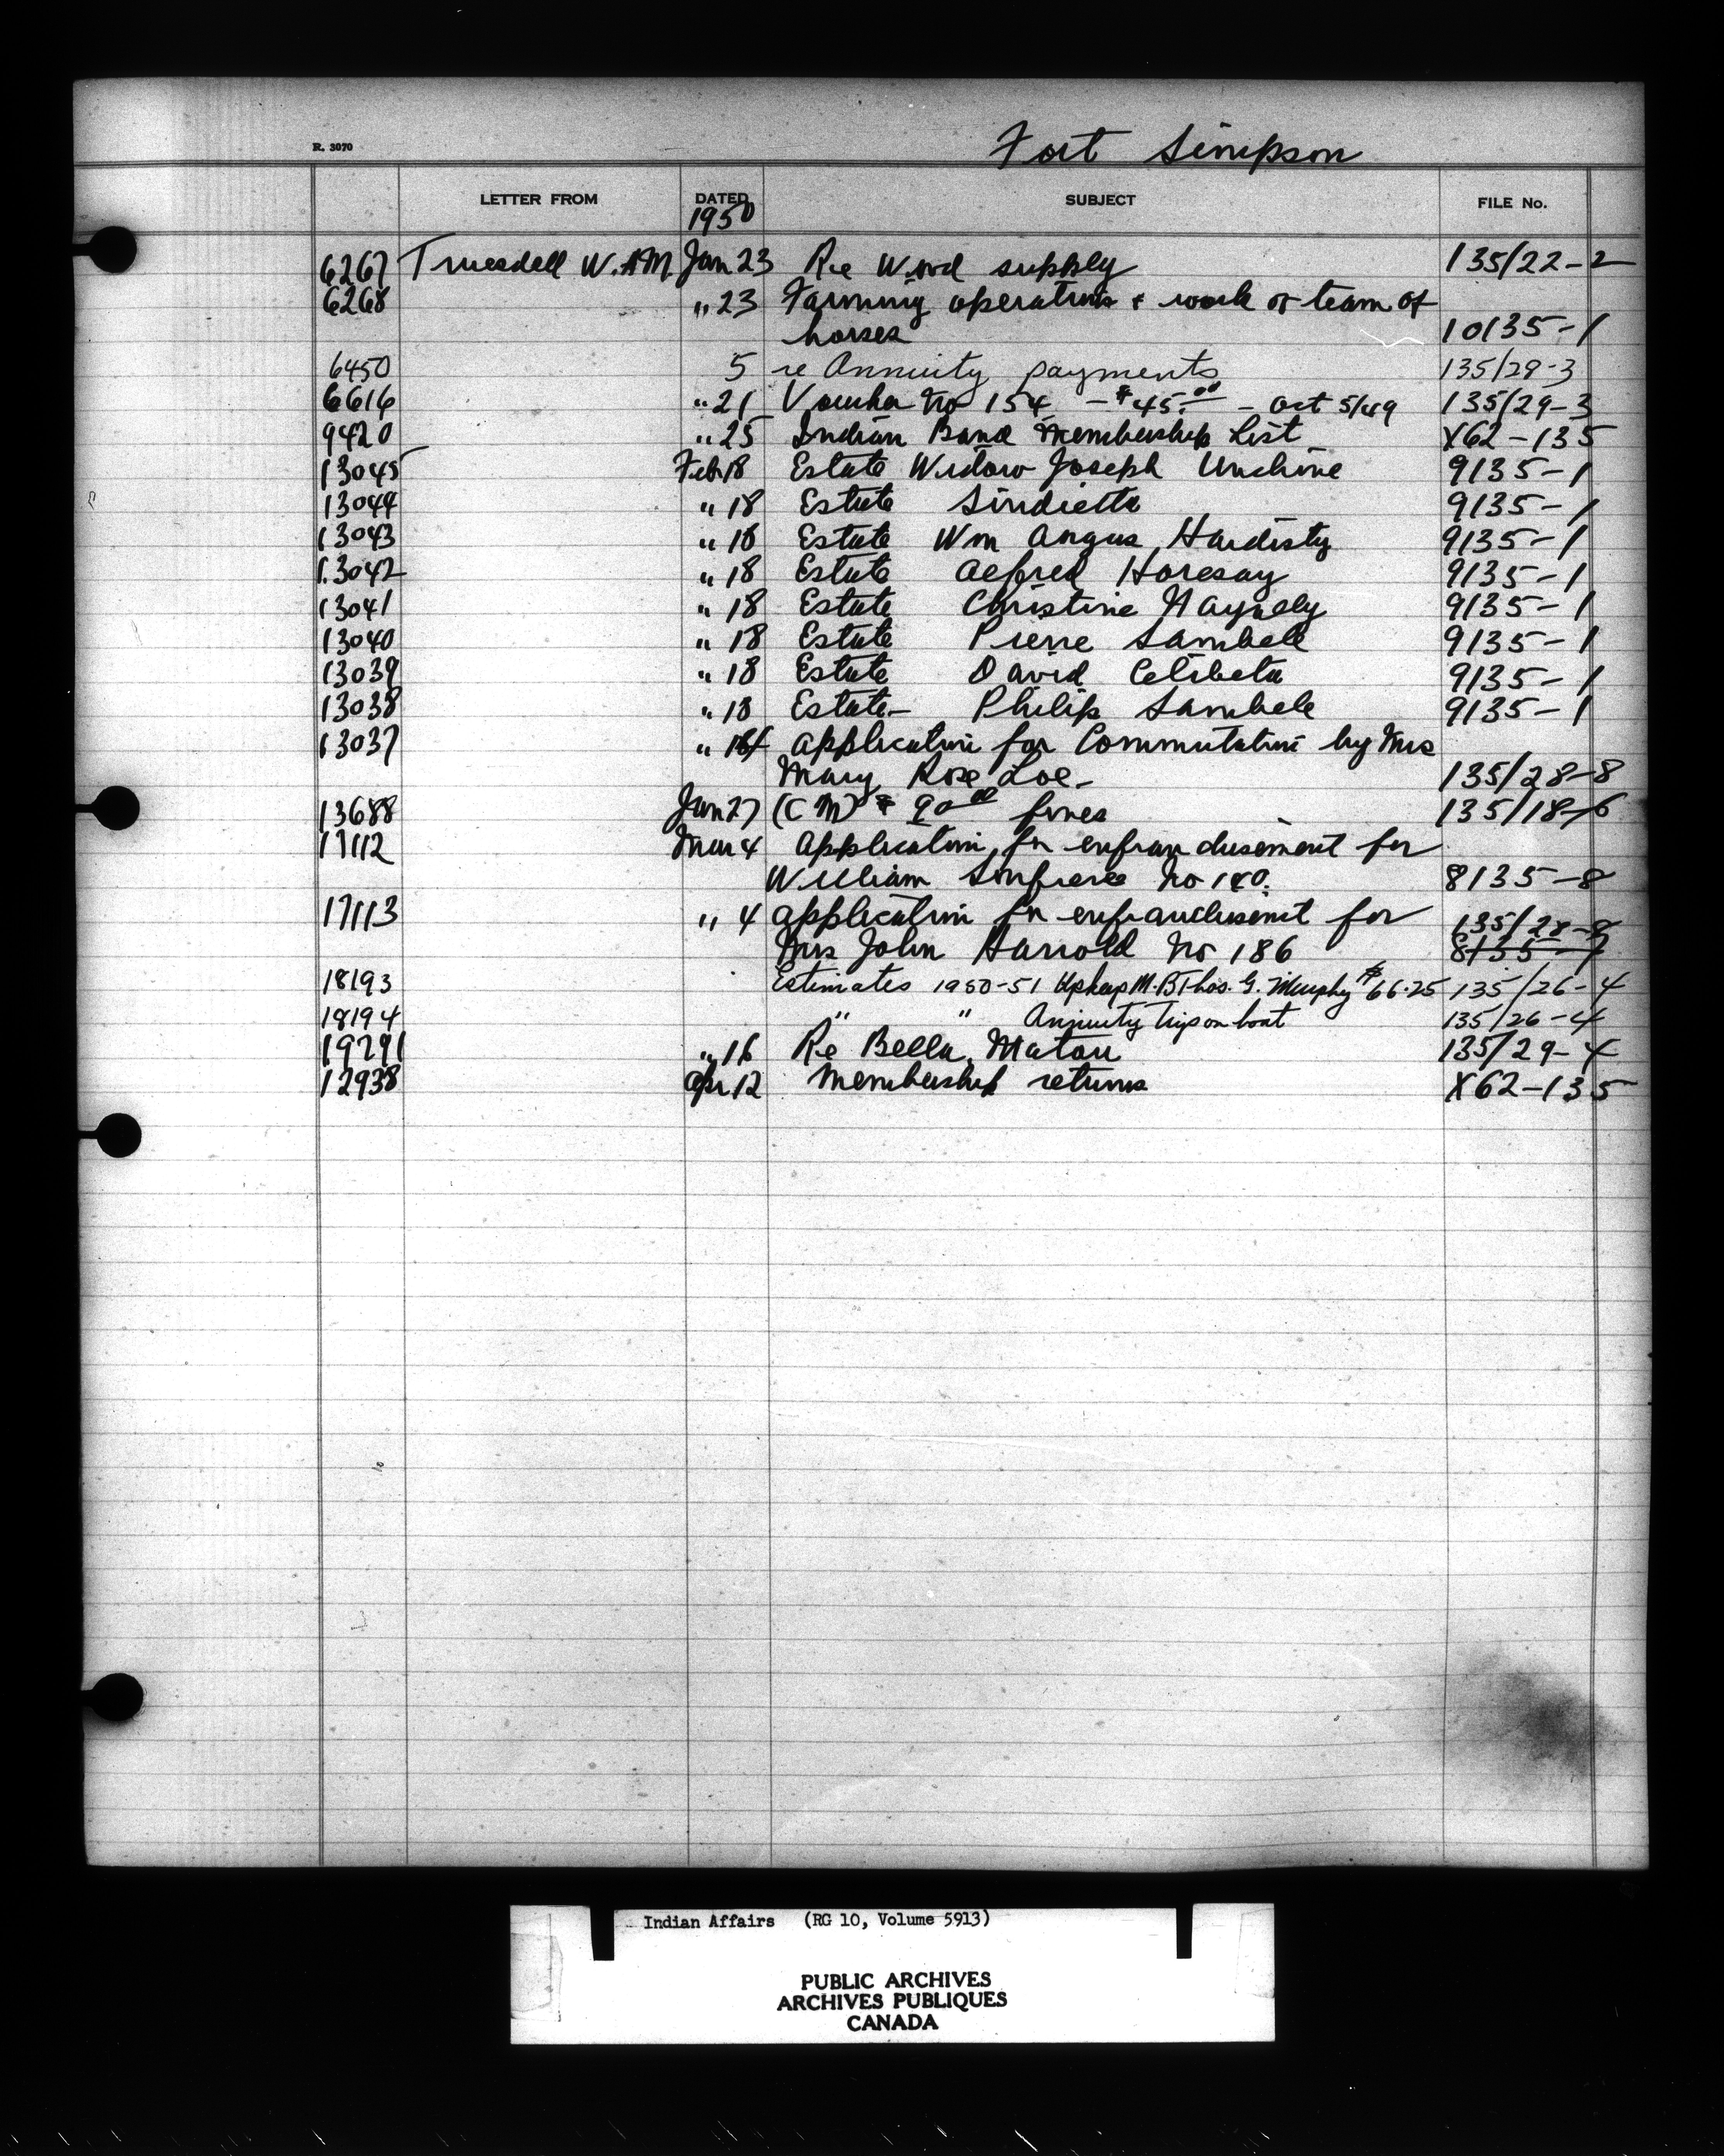 R. 3070
Fort Simpson
LETTER FROM DATED SUBJECT FILE No.
1950
6267 Truesdell W.AM Jan 23 Re Wood supply 135/22-2
6268 " 23 Farming operations & work of team of
horses 10135-1
6450 5 re Annuity payments 135/29-3
6616 " 21 Voucher No 154 - $45.00 - Oct 5/49 135/29-3
9420 " 25 Indian Band Membership List X62-135
13045 Feb 18 Estate Widow Joseph Unchine 9135-1
13044 " 18 Estate Sindietta 9135-1
13043 " 18 Estate Wm Angus Hardisty 9135-1
13042 " 18 Estate Alfred Horesay 9135-1
13041 " 18 Estate Christine 9135-1
13040 " 18 Estate Pierre Sambele 9135-1
13039 " 18 Estate David Cetibeta 9135-1
13038 " 18 Estate- Philip Sambele 9135-1
13037 " Application for Commutation by Mrs
Mary Rose Loe- 135/28-8
13688 Jan 27 (CM) $ 90 00 fines 135/18-6
17112 Mar 4 Application for enfranchisement for
William No 180. 8135-8
17113 " 4 Application for enfranchisement for 135/28-8
Mrs John Harrold No 186 8135-7
18193 Estimates 1950-51 Upkeep M.B Thos. G. Murphy $66.25 135/26-4
18194 " " Annuity Trip on boat 135/26-4
19291 " 16 Re Bella Matou 135/29-4
12938 Apr 12 Membership returns X62-135
Indian Affairs (RG 10, Volume 5913)
PUBLIC ARCHIVES
ARCHIVES PUBLIQUES
CANADA